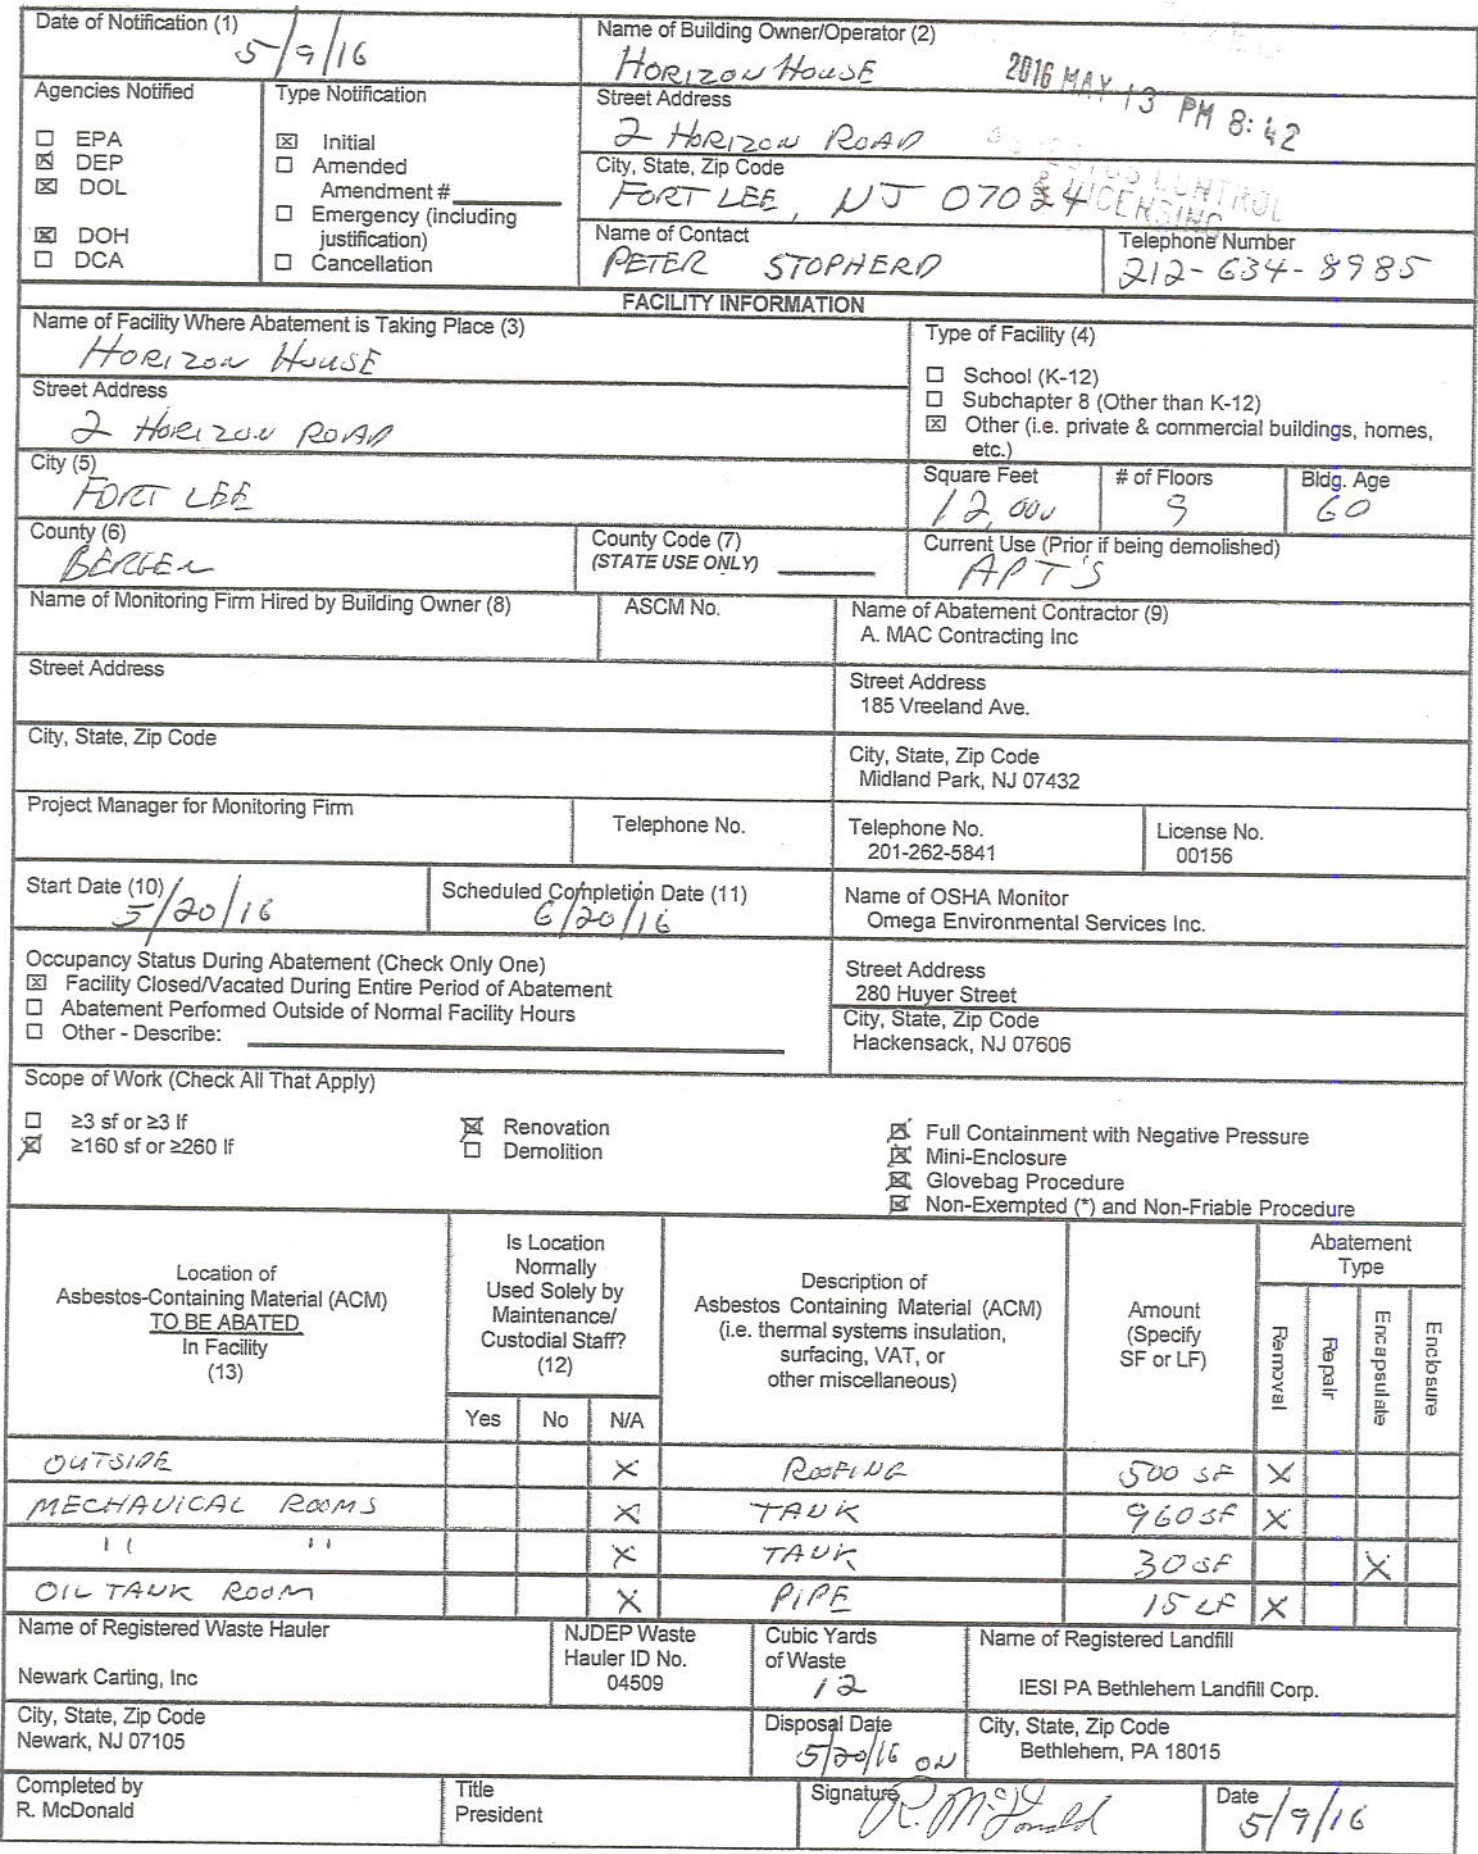 Date of Notification (1)
5/9/16
Name of Building Owner/Operator (2)
HORIZON HOUSE
2016 MAY 13 PM 8:42
Agencies Notified
☐ EPA
☒ DEP
☒ DOL
☒ DOH
☐ DCA
Type Notification
☒ Initial
☐ Amended
Amendment #
☐ Emergency (including
justification)
☐ Cancellation
Street Address
2 HORIZON ROAD
City, State, Zip Code
FORT LEE, NJ 07024
CONTROL
& LICENSING
Name of Contact
PETER STOPHERD
Telephone Number
212-634-8985
FACILITY INFORMATION
Name of Facility Where Abatement is Taking Place (3)
HORIZON HOUSE
Street Address
2 HORIZON ROAD
Type of Facility (4)
☐ School (K-12)
☐ Subchapter 8 (Other than K-12)
☒ Other (i.e. private & commercial buildings, homes,
etc.)
City (5)
FORT LEE
Square Feet
12,000
# of Floors
9
Bldg. Age
60
County (6)
BERGEN
County Code (7)
(STATE USE ONLY)
Current Use (Prior if being demolished)
APT'S
Name of Monitoring Firm Hired by Building Owner (8)
ASCM No.
Name of Abatement Contractor (9)
A. MAC Contracting Inc
Street Address
Street Address
185 Vreeland Ave.
City, State, Zip Code
City, State, Zip Code
Midland Park, NJ 07432
Project Manager for Monitoring Firm
Telephone No.
Telephone No.
201-262-5841
License No.
00156
Start Date (10)
5/20/16
Scheduled Completion Date (11)
6/20/16
Name of OSHA Monitor
Omega Environmental Services Inc.
Occupancy Status During Abatement (Check Only One)
☒ Facility Closed/Vacated During Entire Period of Abatement
☐ Abatement Performed Outside of Normal Facility Hours
☐ Other - Describe:
Street Address
280 Huyer Street
City, State, Zip Code
Hackensack, NJ 07606
Scope of Work (Check All That Apply)
☐ ≥3 sf or ≥3 lf
☒ ≥160 sf or ≥260 lf
☒ Renovation
☐ Demolition
☒ Full Containment with Negative Pressure
☒ Mini-Enclosure
☒ Glovebag Procedure
☒ Non-Exempted (*) and Non-Friable Procedure
Location of
Asbestos-Containing Material (ACM)
TO BE ABATED
In Facility
(13)
Is Location
Normally
Used Solely by
Maintenance/
Custodial Staff?
(12)
Yes No N/A
Description of
Asbestos Containing Material (ACM)
(i.e. thermal systems insulation,
surfacing, VAT, or
other miscellaneous)
Amount
(Specify
SF or LF)
Abatement
Type
Removal
Repair
Encapsulate
Enclosure
OUTSIDE X ROOFING 500 SF X
MECHANICAL ROOMS X TANK 960 SF X
" " X TANK 30 SF X
OIL TANK ROOM X PIPE 15 LF X
Name of Registered Waste Hauler
Newark Carting, Inc
NJDEP Waste
Hauler ID No.
04509
Cubic Yards
of Waste
12
Name of Registered Landfill
IESI PA Bethlehem Landfill Corp.
City, State, Zip Code
Newark, NJ 07105
Disposal Date
5/20/16 ON
City, State, Zip Code
Bethlehem, PA 18015
Completed by
R. McDonald
Title
President
Signature
R. McDonald
Date
5/9/16